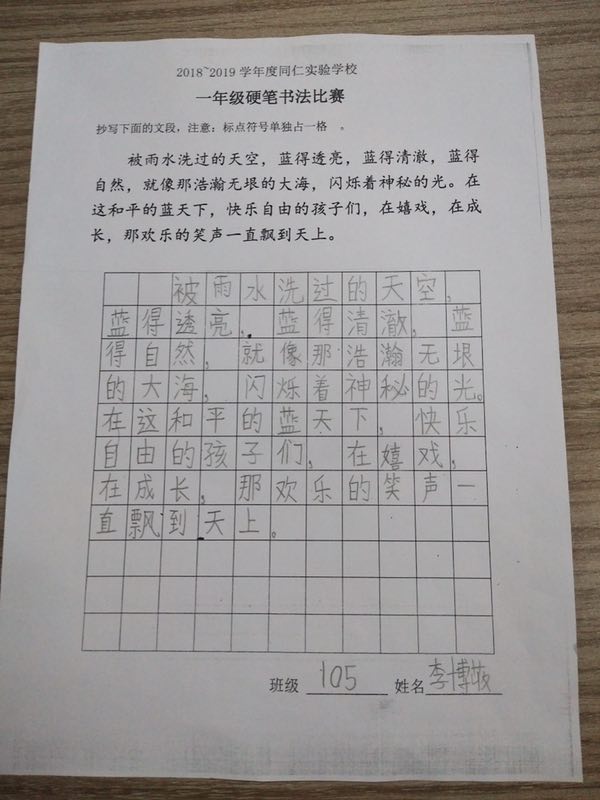 2018~2019 学年度同仁实验学校
一年级硬笔书法比赛
抄写下面的文段，注意：标点符号单独占一格 。
被雨水洗过的天空，蓝得透亮，蓝得清澈，蓝得
自然，就像那浩瀚无垠的大海，闪烁着神秘的光。在
这和平的蓝天下，快乐自由的孩子们，在嬉戏，在成
长，那欢乐的笑声一直飘到天上。
被雨水洗过的天空，
蓝得透亮，蓝得清澈，蓝
得自然，就像那浩瀚无垠
的大海，闪烁着神秘的光。
在这和平的蓝天下，快乐
自由的孩子们，在嬉戏，
在成长，那欢乐的笑声一
直飘到天上。
班级 105 姓名 李博